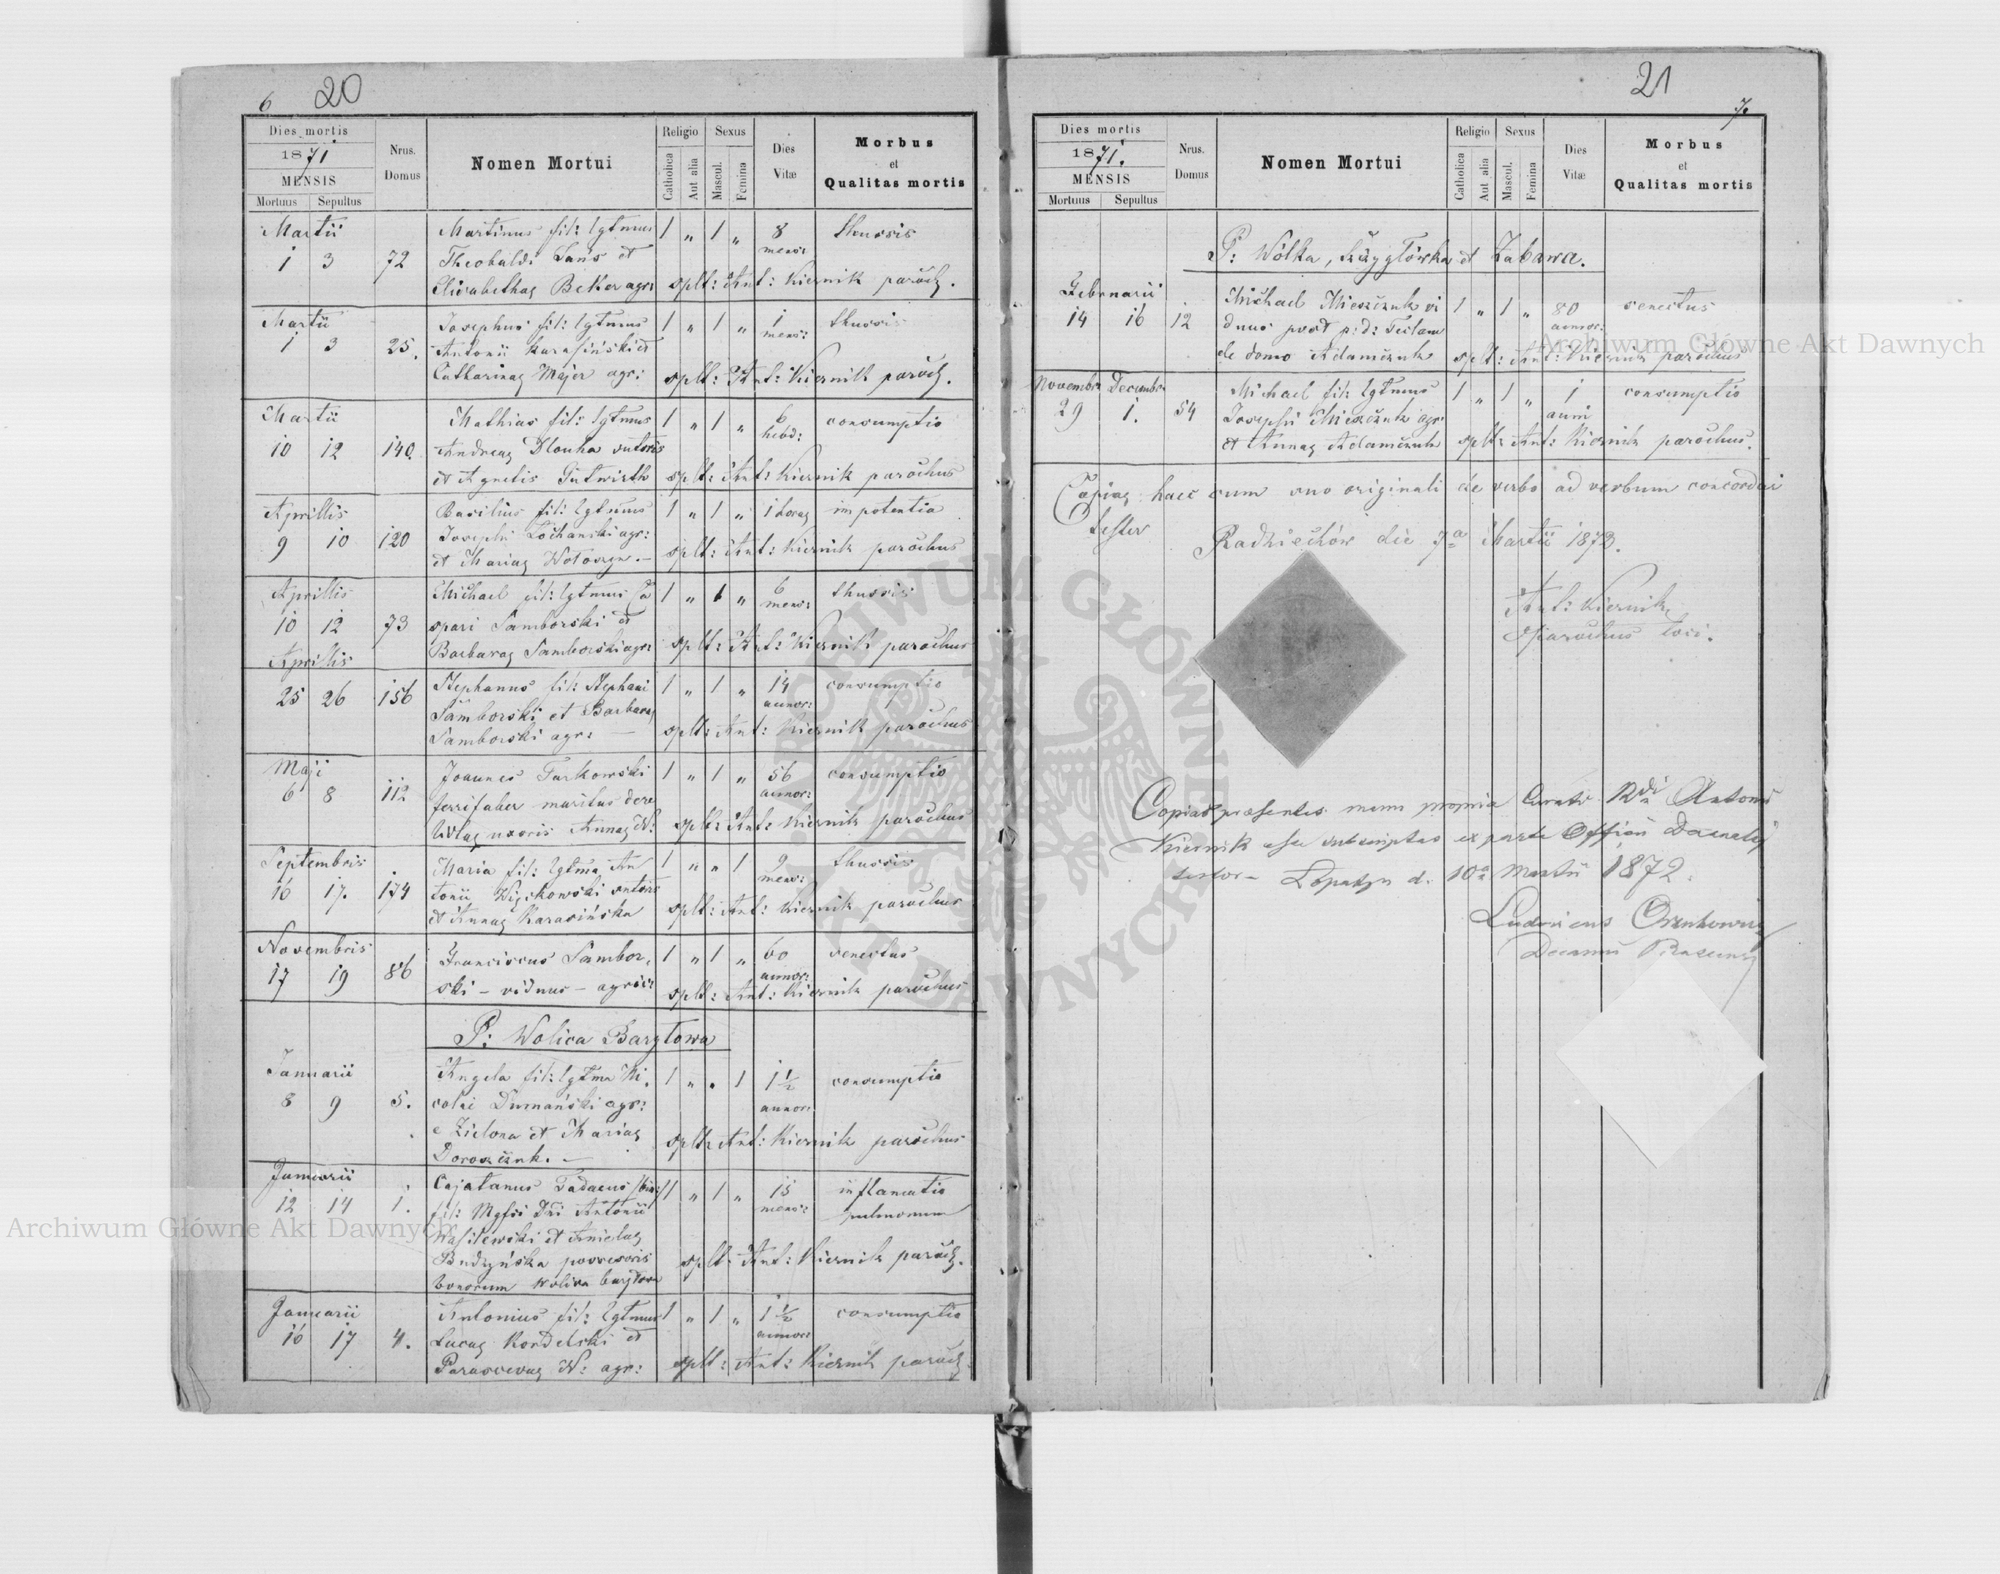 6 20
Dies mortis
1871
MENSIS
Mortuus Sepultus
Nrus. Domus
Nomen Mortui
Religio
Catholica
Aut alia
Sexus
Mascul.
Femina
Dies Vitæ
Morbus
et
Qualitas mortis
Martii Martinus fil: lgtmus 1 " 1 " 8 thussis
1 3 72 Theobaldi Sans et mens:
Elisabethae Beker agr: splt: Ant: Kiernik paroch.
Martii Josephus fil: lgtmus 1 " 1 " 1 thussis
1 3 25. Antonii Karasiński et mens:
Catharinae Majer agr: splt: Ant: Kiernik paroch.
Martii Mathias fil: lgtmus 1 " 1 " 6 consumptio
10 12 140. Andreae Dlouha sutoris hebd:
et Agnetis Gutwirth splt: Ant: Kiernik parochus
Aprillis Basilius fil: lgtmus 1 " 1 " 1 horae impotentia
9 10 120 Josephi Lochanski agr:
et Mariae Wołoszyn. – splt: Ant: Kiernik parochus
Aprillis Michael fil: lgtmus Ca 1 " 1 " 6 thussis
10 12 73 spari Samborski et mens:
Barbarae Samborski agr: splt: Ant: Kiernik parochus
Aprillis
25 26 156 Stephanus fil: Stephani 1 " 1 " 14 consumptio
Samborski et Barbarae annor:
Samborski agr: — splt: Ant: Kiernik parochus
Maji Joannes Turkowski 1 " 1 " 56 consumptio
6 8 112 ferrifaber maritus dere annor:
lictae uxoris Annae N: splt: Ant: Kiernik parochus
Septembris Maria fil: lgtma An 1 " " 1 2 thussis
16 17. 174 tonii Więckowski sutoris mens:
et Annae Karasińska splt: Ant: Kiernik parochus
Novembris Franciscus Sambor, 1 " 1 " 60 senectus
17 19 86 ski – viduus – agric: annor:
splt: Ant: Kiernik parochus
P: Wolica Baryłowa
Januarii Angela fil: lgtma Ni, 1 " " 1 1½ consumptio
8 9 5. colai Dumański agr: annor:
e Zielona et Mariae splt: Ant: Kiernik parochus
Doroszczuk. –
Januarii Cajetanus Tadaeus 1 " 1 " 15 inflamatio
12 14 1. fil: Mgfci Dni Antonii mens: pulmonum
Wasilewski et Anielae
Budzyńska possesoris splt: Ant: Kiernik paroch.
bonorum Wolica baryłowa
Januarii Antonius fil: lgtmus 1 " 1 " 1½ consumptio
16 17 4. Lucae Kordelski et annor:
Parascevae N: agr: splt: Ant: Kiernik paroch.
21
7.
Dies mortis
1871.
MENSIS
Mortuus Sepultus
Nrus. Domus
Nomen Mortui
Religio
Catholica
Aut alia
Sexus
Mascul.
Femina
Dies Vitæ
Morbus
et
Qualitas mortis
P: Wólka, Krzygłówka et Zabawa.
Februarii Michael Mieszczuk vi 1 " 1 " 80 senectus
14 16 12 duus post p: d: Teclam annor:
de domo Adamczuk splt: Ant: Kiernik parochus
Novembr. Decembr. Michael fil: lgtmus 1 " 1 " 1 consumptio
29 1. 54 Josephi Mieszczuk agr: anni
et Annae Adamczuk splt: Ant: Kiernik parochus.
Copiae haec cum suo originali de verbo ad verbum concordari
testor
Radziechów die 7a Martii 1872.
Ant: Kiernik
Parochus loci.
Copias praesentes manu propria Curati Rdi Antoni
Kiernik esse subscriptas ex parte Officii Decanalis
testor – Łopatyn d. 10a Martii 1872.
Ludovicus
Decanus
ARCHIWUM GŁÓWNE AKT DAWNYCH
Archiwum Główne Akt Dawnych
Archiwum Główne Akt Dawnych